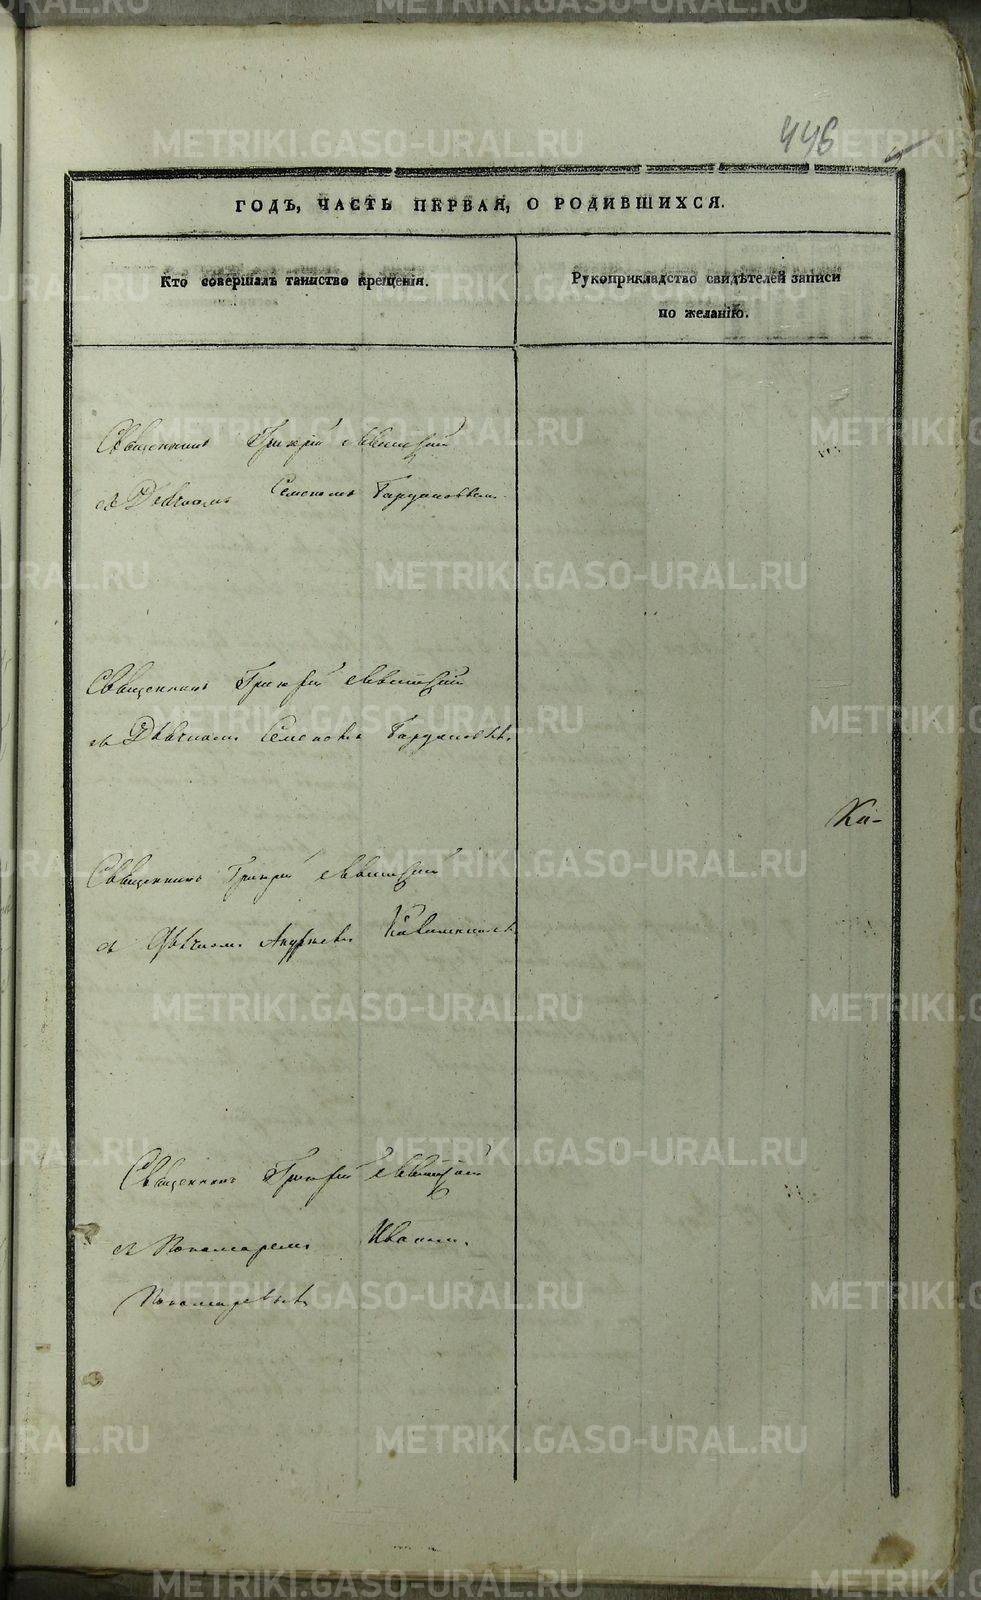 446
ГОДЪ, ЧАСТЬ ПЕРВАЯ, О РОДИВШИХСЯ.
Кто совершалъ таинство крещенія.
Рукоприкладство свидѣтелей записи
по желанію.
Священникъ Григорій Левитскій
съ Дьячкомъ Семеномъ
Священникъ Григорій Левитскій
съ Дьячкомъ Семеномъ
Ка-
Священникъ Григорій Левитскій
съ Дьячкомъ Андреемъ
Священникъ Григорій Левитскій
съ Пономаремъ Иваномъ
Пономаревымъ
METRIKI.GASO-URAL.RU